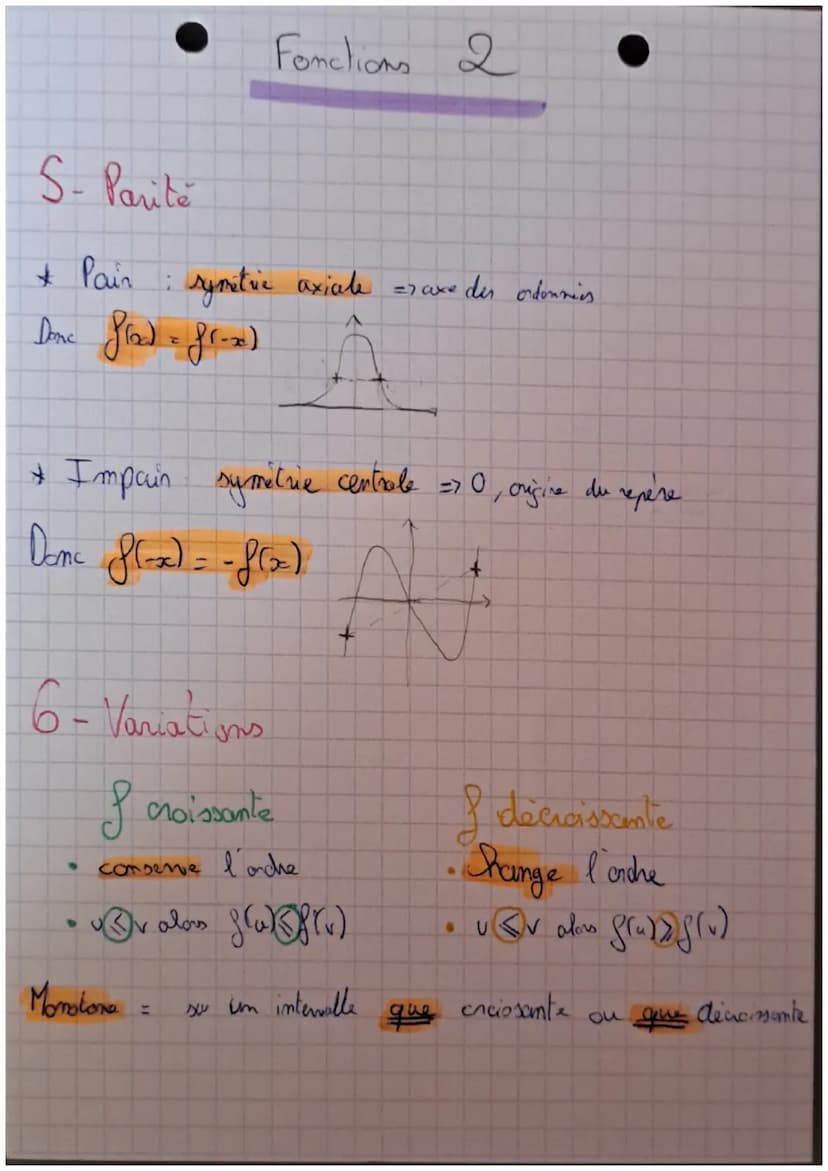 Fonctions 2
5- Parité
* Pair : symétrie axiale => axe des ordonnées
Donc f(x) = f(-x)
* Impain symétrie centrale => 0, origine du repère
Donc f(-x) = -f(x)
6- Variations
f croissante
• conserve l'ordre
• u ⩽ v alors f(u) ⩽ f(v)
f décroissante
• Change l'ordre
• u ⩽ v alors f(u) ⩾ f(v)
Monotone = sur un intervalle que croissante ou que décroissante